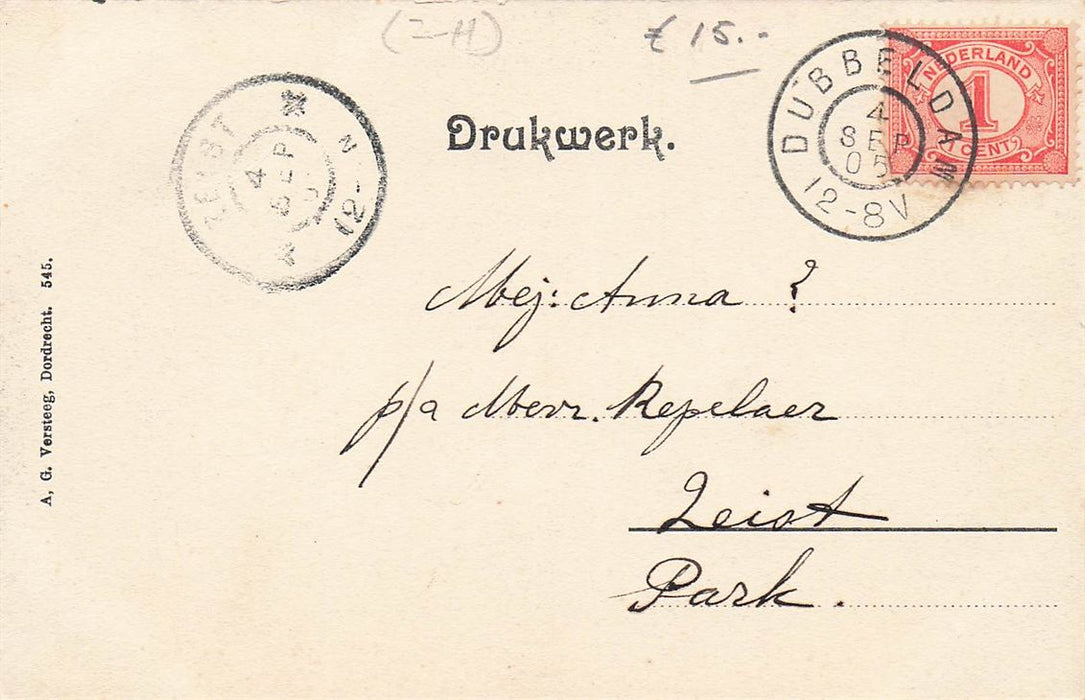 (Z-H)
£ 15.--
Drukwerk.
NEDERLAND
1
CENT
DUBBELDAM
4
SEP
05
12-8V
ZEIST
4
SEP
12-
N
Mej: Anna ?
p/a Mevr. Repelaer
Zeist
Park.
A. G. Versteeg, Dordrecht. 545.